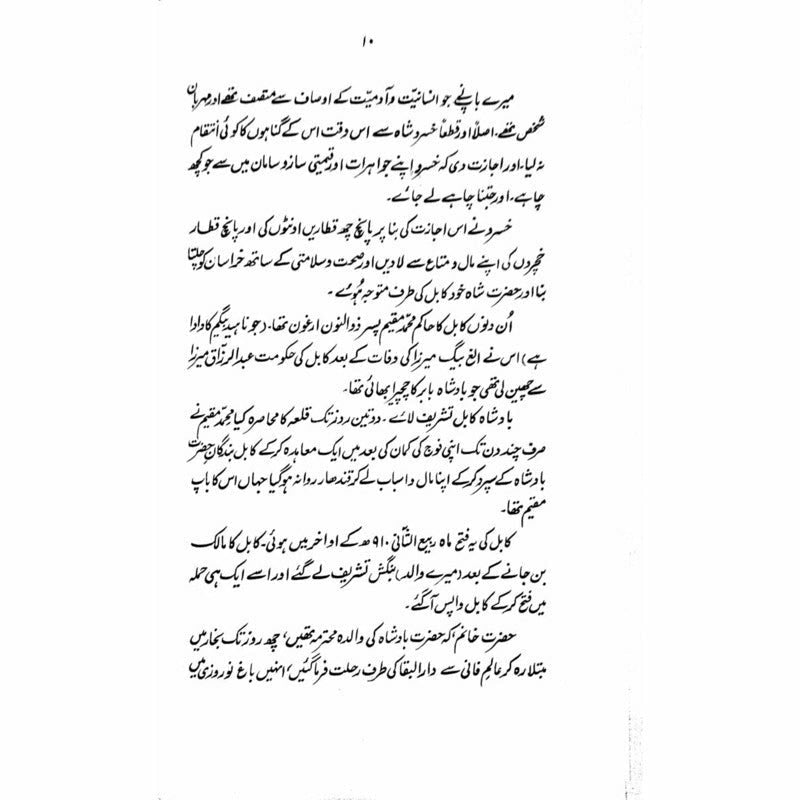 ۱۰
میرے باپ نے جو انسانیّت و آدمیّت کے اوصاف سے متصف تھے اور مہربان
شخص تھے۔ اصلاً اور قطعاً خسرو شاہ سے اس وقت اس کے گناہوں کا کوئی انتقام
نہ لیا۔ اور اجازت دی کہ خسرو اپنے جواہرات اور قیمتی ساز و سامان میں سے جو کچھ
چاہے۔ اور جتنا چاہے لے جائے۔
خسرو نے اس اجازت کی بنا پر پانچ چھ قطاریں اونٹوں کی اور پانچ قطار
خچروں کی اپنے مال و متاع سے لادیں اور صحت و سلامتی کے ساتھ خراسان کو چلتا
بنا اور حضرت شاہ خود کابل کی طرف متوجہ ہُوئے۔
اُن دنوں کابل کا حاکم محمّد مقیم پسر ذوالنون ارغون تھا۔ (جو ناہید بیگم کا دادا
ہے) اس نے الغ بیگ میرزا کی وفات کے بعد کابل کی حکومت عبدالرزّاق میرزا
سے چھین لی تھی جو بادشاہ بابر کا چچیرا بھائی تھا۔
بادشاہ کابل تشریف لائے۔ دو تین روز تک قلعہ کا محاصرہ کیا محمّد مقیم نے
صرف چند دن تک اپنی فوج کی کمان کی بعد میں ایک معاہدہ کرکے کابل بندگانِ حضرت
بادشاہ کے سپرد کرکے اپنا مال و اسباب لے کر قندھار روانہ ہو گیا جہاں اس کا باپ
مقیم تھا۔
کابل کی یہ فتح ماہ ربیع الثانی ۹۱۰ھ کے اواخر میں ہوئی۔ کابل کا مالک
بن جانے کے بعد (میرے والد) بنگش تشریف لے گئے اور اسے ایک ہی حملہ
میں فتح کرکے کابل واپس آ گئے۔
حضرت خانم، کہ حضرت بادشاہ کی والدہ محترمہ تھیں، چھ روز تک بخار میں
مبتلا رہ کر عالم فانی سے دارالبقا کی طرف رحلت فرما گئیں، انہیں باغ نوروزی میں